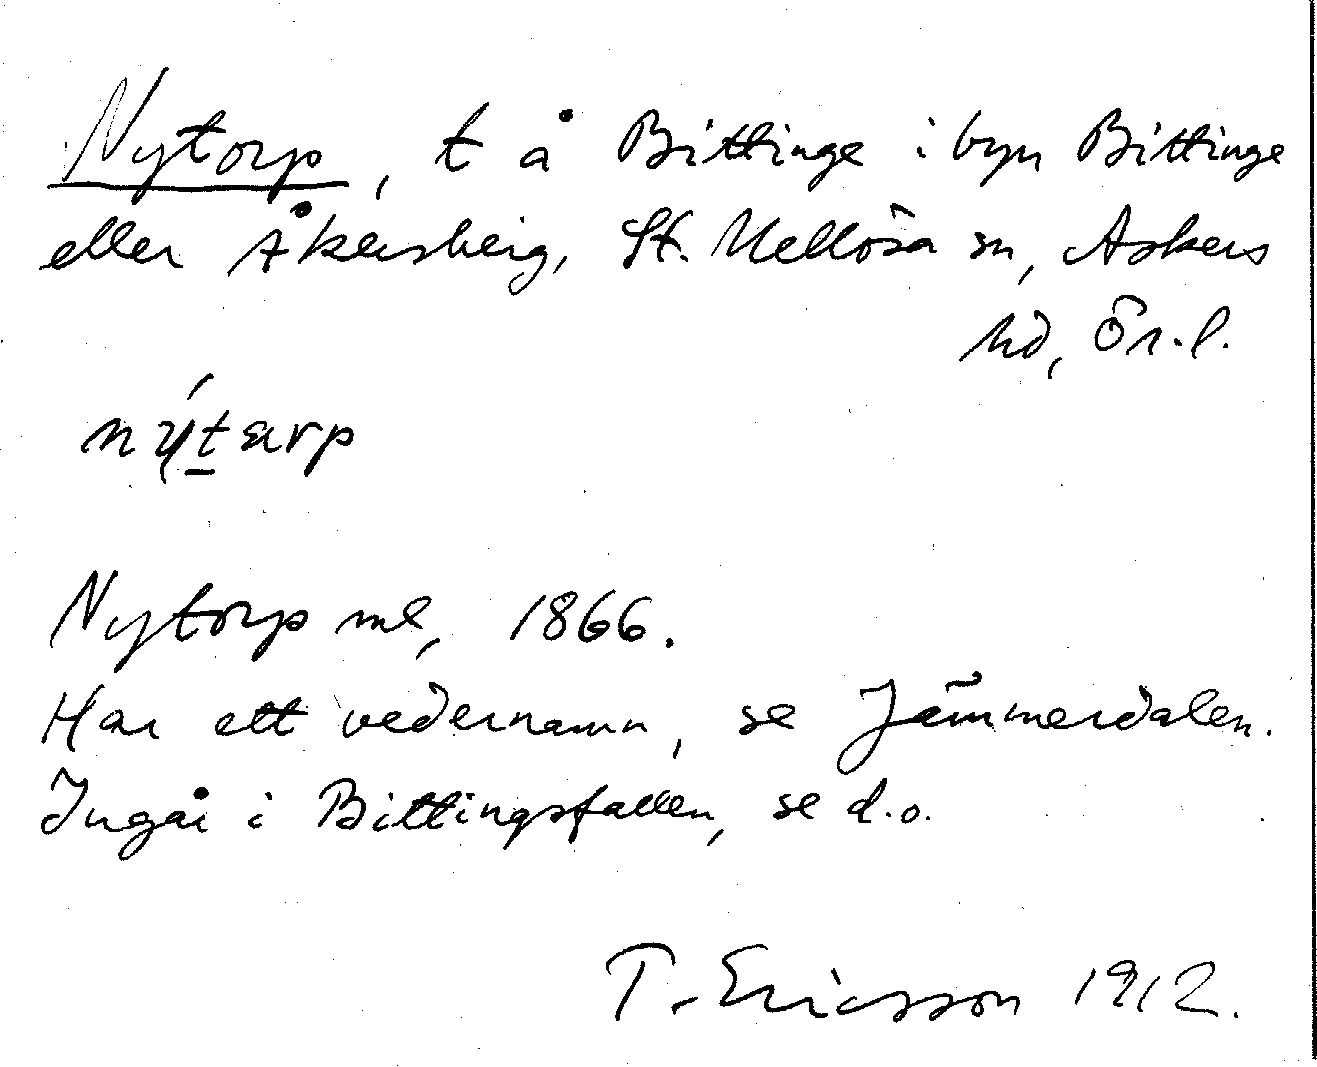 Nytorp, t å Bittinge i byn Bittinge
eller Åkersberg, St. Mellösa sn, Askers
hd, Ör.l.
nýtarp
Nytorp ml, 1866.
Har ett vedernamn, se Jämmerdalen.
Ingår i Bittingsfallen, se d.o.
T. Ericsson 1912.